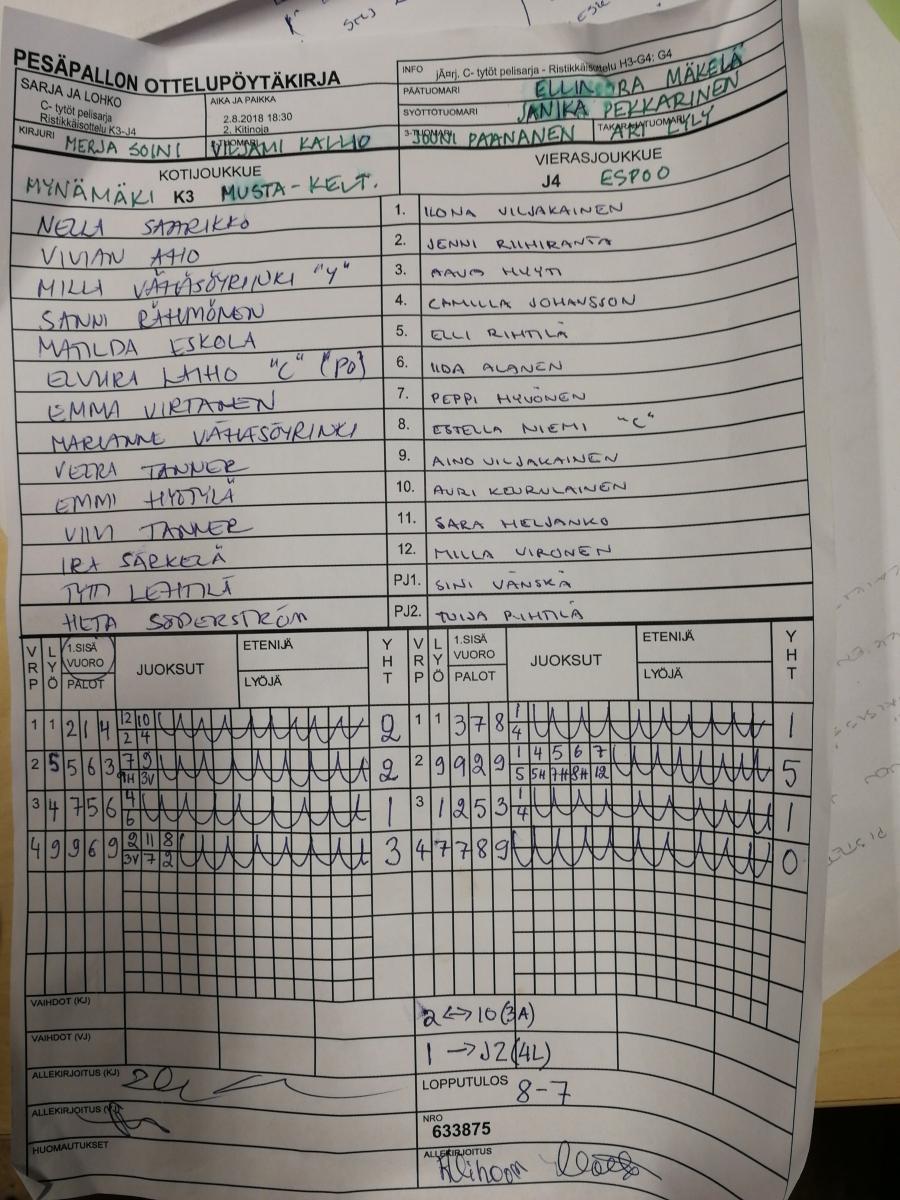 PESÄPALLON OTTELUPÖYTÄKIRJA
SARJA JA LOHKO
C- tytöt pelisarja
Ristikkäisottelu K3-J4
AIKA JA PAIKKA
2.8.2018 18:30
2. Kitinoja
INFO jÃ¤rj. C- tytöt pelisarja - Ristikkäisottelu H3-G4: G4
PÄÄTUOMARI ELLINOORA MÄKELÄ
SYÖTTÖTUOMARI JANIKA PEKKARINEN
KIRJURI MERJA SOINI
VILJAMI KALLIO
3-TUOMARI JOUNI PAANANEN
TAKARAJATUOMARI ARI LYLY
KOTIJOUKKUE
MYNÄMÄKI K3 MUSTA-KELT.
VIERASJOUKKUE
J4 ESPOO
NELLA SAARIKKO 1. ILONA VILJAKAINEN
VIVIAN AHO 2. JENNI RIIHIRANTA
MILLI VÄHÄSÖYRINKI "Y" 3. AAVA HYYTI
SANNI RÄHMÖNEN 4. CAMILLA JOHANSSON
MATILDA ESKOLA 5. ELLI RIHTILÄ
ELVIIRA LAIHO "C" (PO) 6. IIDA ALANEN
EMMA VIRTANEN 7. PEPPI HYVÖNEN
MARIANNE VÄHÄSÖYRINKI 8. ESTELLA NIEMI "C"
VEERA TANNER 9. AINO VILJAKAINEN
EMMI HYÖTYLÄ 10. AURI KEURULAINEN
VIIVI TANNER 11. SARA HELJANKO
IRA SÄRKELÄ 12. MILLA VIRONEN
TYTTI LEHTILÄ PJ1. SINI VÄNSKÄ
HETA SÖDERSTRÖM PJ2. TUIJA RIHTILÄ
VRP LYÖ 1.SISÄ VUORO PALOT JUOKSUT ETENIJÄ LYÖJÄ YHT VRP LYÖ 1.SISÄ VUORO PALOT JUOKSUT ETENIJÄ LYÖJÄ YHT
1 1 2 1 4 12 10 2 1 1 3 7 8 1 1
2 4 4
2 5 5 6 3 7 9 2 2 9 9 2 9 1 4 5 6 7 5
9H 3V 5 5H 7H 8H 12
3 4 7 5 6 4 1 3 1 2 5 3 1 1
6 4
4 9 9 6 9 2 11 8 3 4 7 7 8 9 0
3V 7 2
VAIHDOT (KJ) 2<->10(3A)
VAIHDOT (VJ) 1 ->J2(4L)
ALLEKIRJOITUS (KJ)
LOPPUTULOS 8-7
ALLEKIRJOITUS (VJ)
NRO
633875
HUOMAUTUKSET
ALLEKIRJOITUS